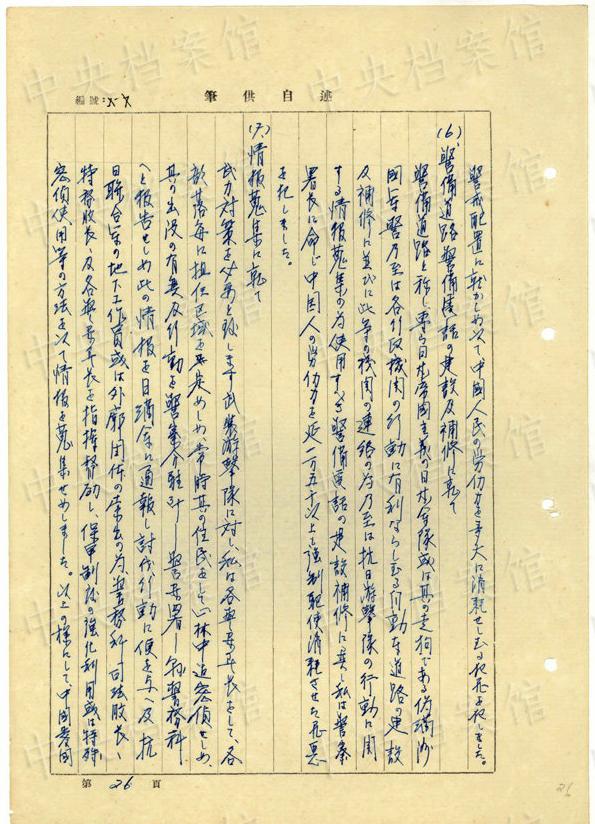 中央档案馆
編號: 
筆供自述
警戒配置に就かしめ以て中国人民の労働力を尨大に消耗せしむる犯罪を犯しました。
(6)、警備道路警備電話の建設及補修に就て
警備道路と称し専ら日本帝国主義の日本軍隊或は其の走狗である偽満洲
国軍警乃至は各行政機関の行動に有利ならしむる自動車道路の建設
及補修に並びに此等の機関の連絡の為乃至は抗日游撃隊の行動に関
する情報蒐集の為使用すべき警備電話の建設補修に関し私は警察
署長に命じ中国人の労働力を延一万五千以上も強制駆使消耗させた罪悪
を犯しました。
(7)、情報蒐集に就て
武力対策を必要と致します武装游撃隊に対し、私は各警察署長をして、各
部落毎に担任区域を定めしめ、常時其の住民をして山林中迄密偵せしめ、
其の出没の有無及行動を警察分駐所—警察署—警務科
へと報告せしめ此の情報を日満軍に通報し討伐行動に便を与へ及抗
日聯合軍の地下工作員或は外廓団体の検挙の為警務科司法股長、
特務股長、及各警察署長を指揮督励し、保甲制度の強化利用或は特殊
密偵使用等の方法を以て情報を蒐集せしめました。以上の様にして、中国愛国
第 26 頁
26